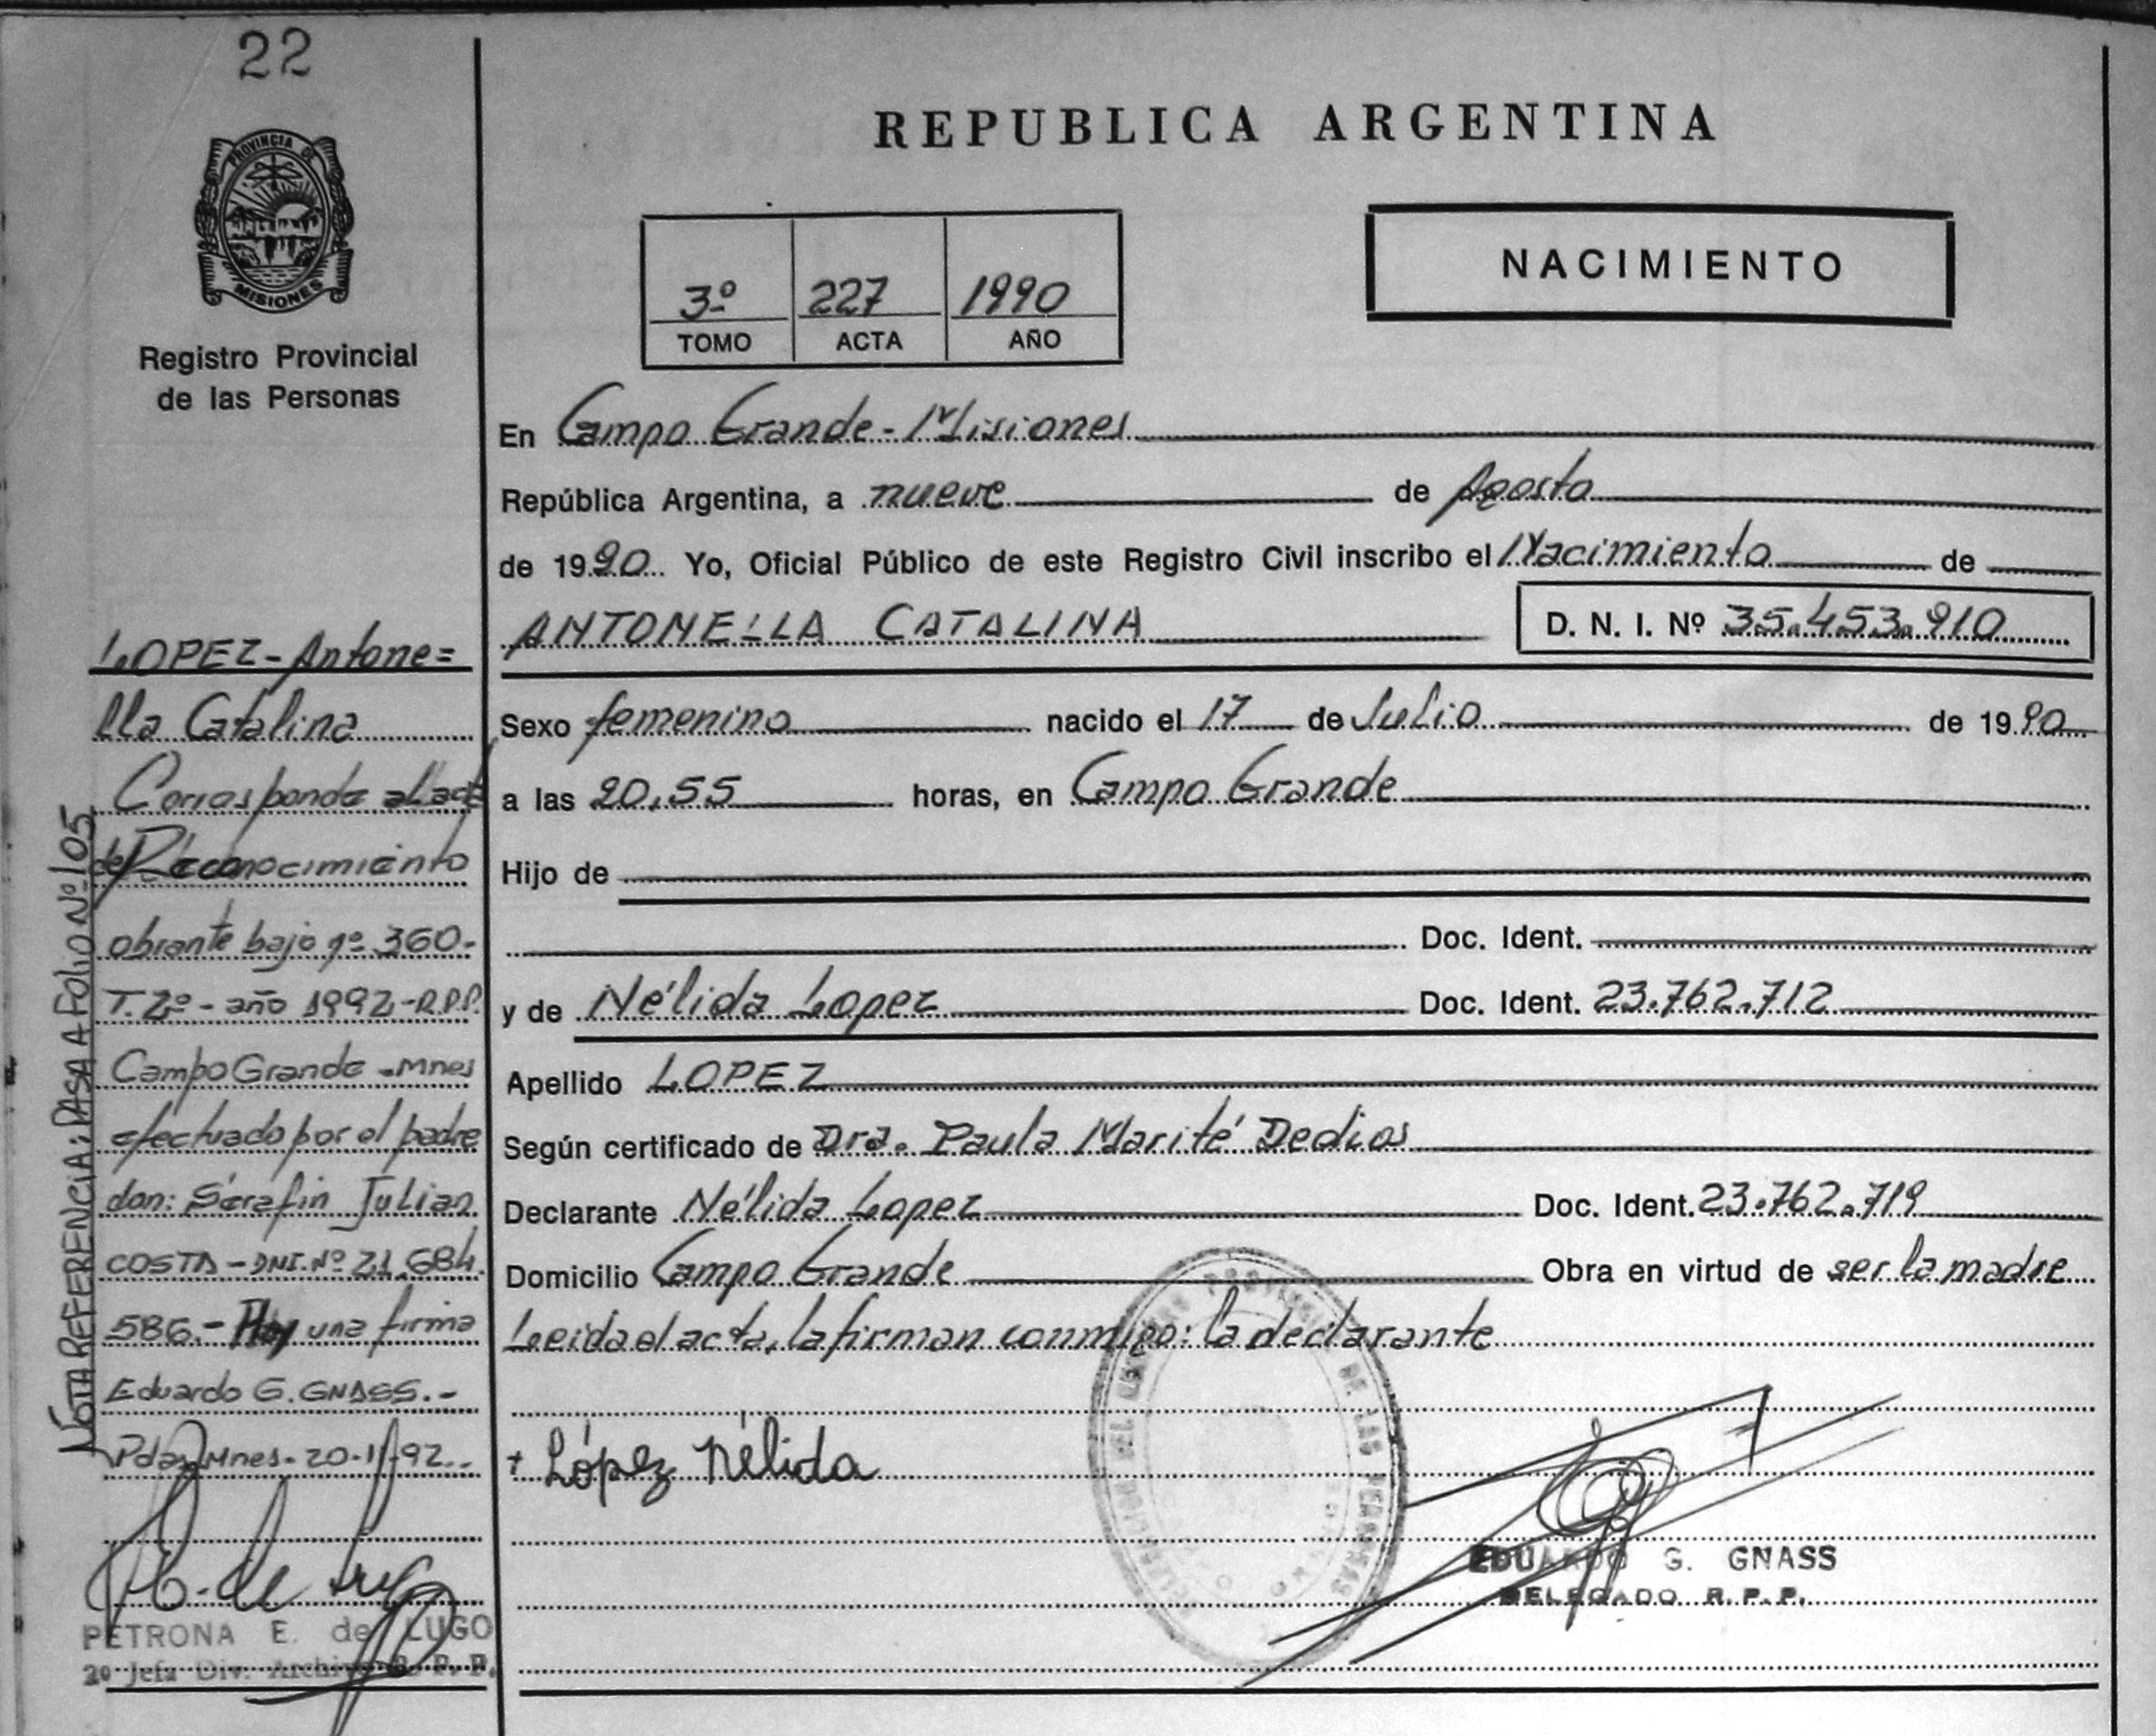 22
PROVINCIA DE
MISIONES
Registro Provincial
de las Personas
LOPEZ-Antone=
lla Catalina
Corresponde al acta
de Reconocimiento
obrante bajo nº 360.
T. 2º - año 1992-R.P.P.
Campo Grande -Mnes
efectuado por el padre
don: Serafin Julian
COSTA - DNI. Nº 21.684.
586.- Hay una firma
Eduardo G. GNASS.-
Pdas Mnes. 20-11-92.-
PETRONA E. de LUGO
2º Jefa Div. Archivo R. P. P.
NOTA REFERENCIA: PASA A FOLIO Nº 105
REPUBLICA ARGENTINA
3º 227 1990
TOMO ACTA AÑO
NACIMIENTO
En Campo Grande - Misiones
República Argentina, a nueve de Agosto
de 1990 Yo, Oficial Público de este Registro Civil inscribo el Nacimiento de
ANTONELLA CATALINA D. N. I. Nº 35.453.910
Sexo femenino nacido el 17 de Julio de 1990
a las 20,55 horas, en Campo Grande
Hijo de
Doc. Ident.
y de Nélida Lopez Doc. Ident. 23.762.712
Apellido LOPEZ
Según certificado de Dra. Paula Marité Dedios
Declarante Nélida Lopez Doc. Ident. 23.762.719
Domicilio Campo Grande Obra en virtud de ser la madre
Leida el acta, la firman conmigo: la declarante
+ López Nélida
EDUARDO G. GNASS
DELEGADO R. P. P.